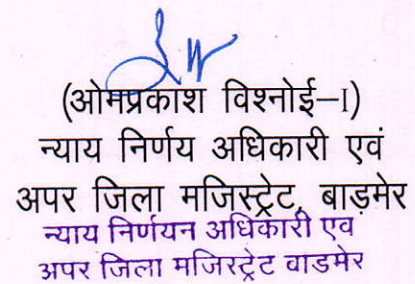 (ओमप्रकाश विश्नोई–I)
न्याय निर्णय अधिकारी एवं
अपर जिला मजिस्ट्रेट, बाड़मेर
न्याय निर्णयन अधिकारी एव
अपर जिला मजिस्ट्रेट वाडमेर